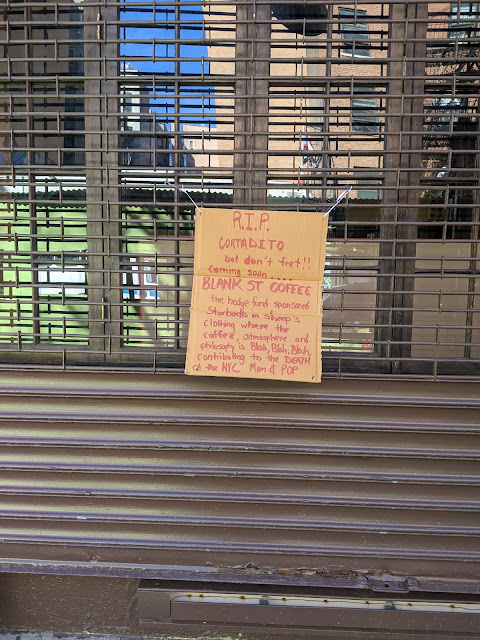 R.I.P.
CORTADITO
but don't fret!!
coming soon....
BLANK ST COFFEE
the hedge fund sponsored
Starbucks in sheep's
clothing where the
coffee, atmosphere and
philosophy is Blah, Blah, Blah,
contributing to the DEATH
of the NYC Mom & POP